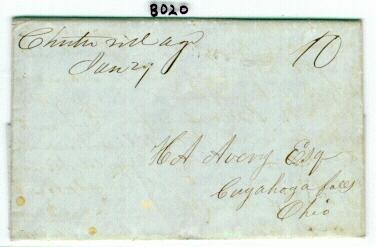 8020
Chester village
Jan 29
10
H A Avery Esq
Cuyahoga falls
Ohio